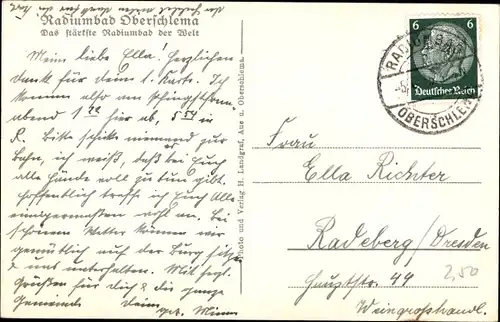 Radiumbad Oberschlema
Das stärkste Radiumbad der Welt
Meine liebe Ella! Herzlichen
Dank für Deine l. Karte. Ich
komme also am Pfingstsonn-
abend 1 hier ab, 5 54 in
R. Bitte schicke niemand zur
Bahn, ich weiß, daß es bei Euch
alle Hände voll zu tun gibt.
Hoffentlich treffe ich Euch Alle
einigermaßen wohl an. Bei
schönem Wetter können wir
gemütlich auf der Burg sitzen
u. uns unterhalten. Mit herzl.
Grüßen für Dich & die ganze
Gemeinde Deine
Photo und Verlag H. Landgraf, Aue u. Oberschlema.
6 6
Deutsches Reich
RADIUMBAD
OBERSCHLEMA
Frau
Ella Richter
Radeberg/Dresden
Hauptstr. 44
Weingroßhandl.
2,50